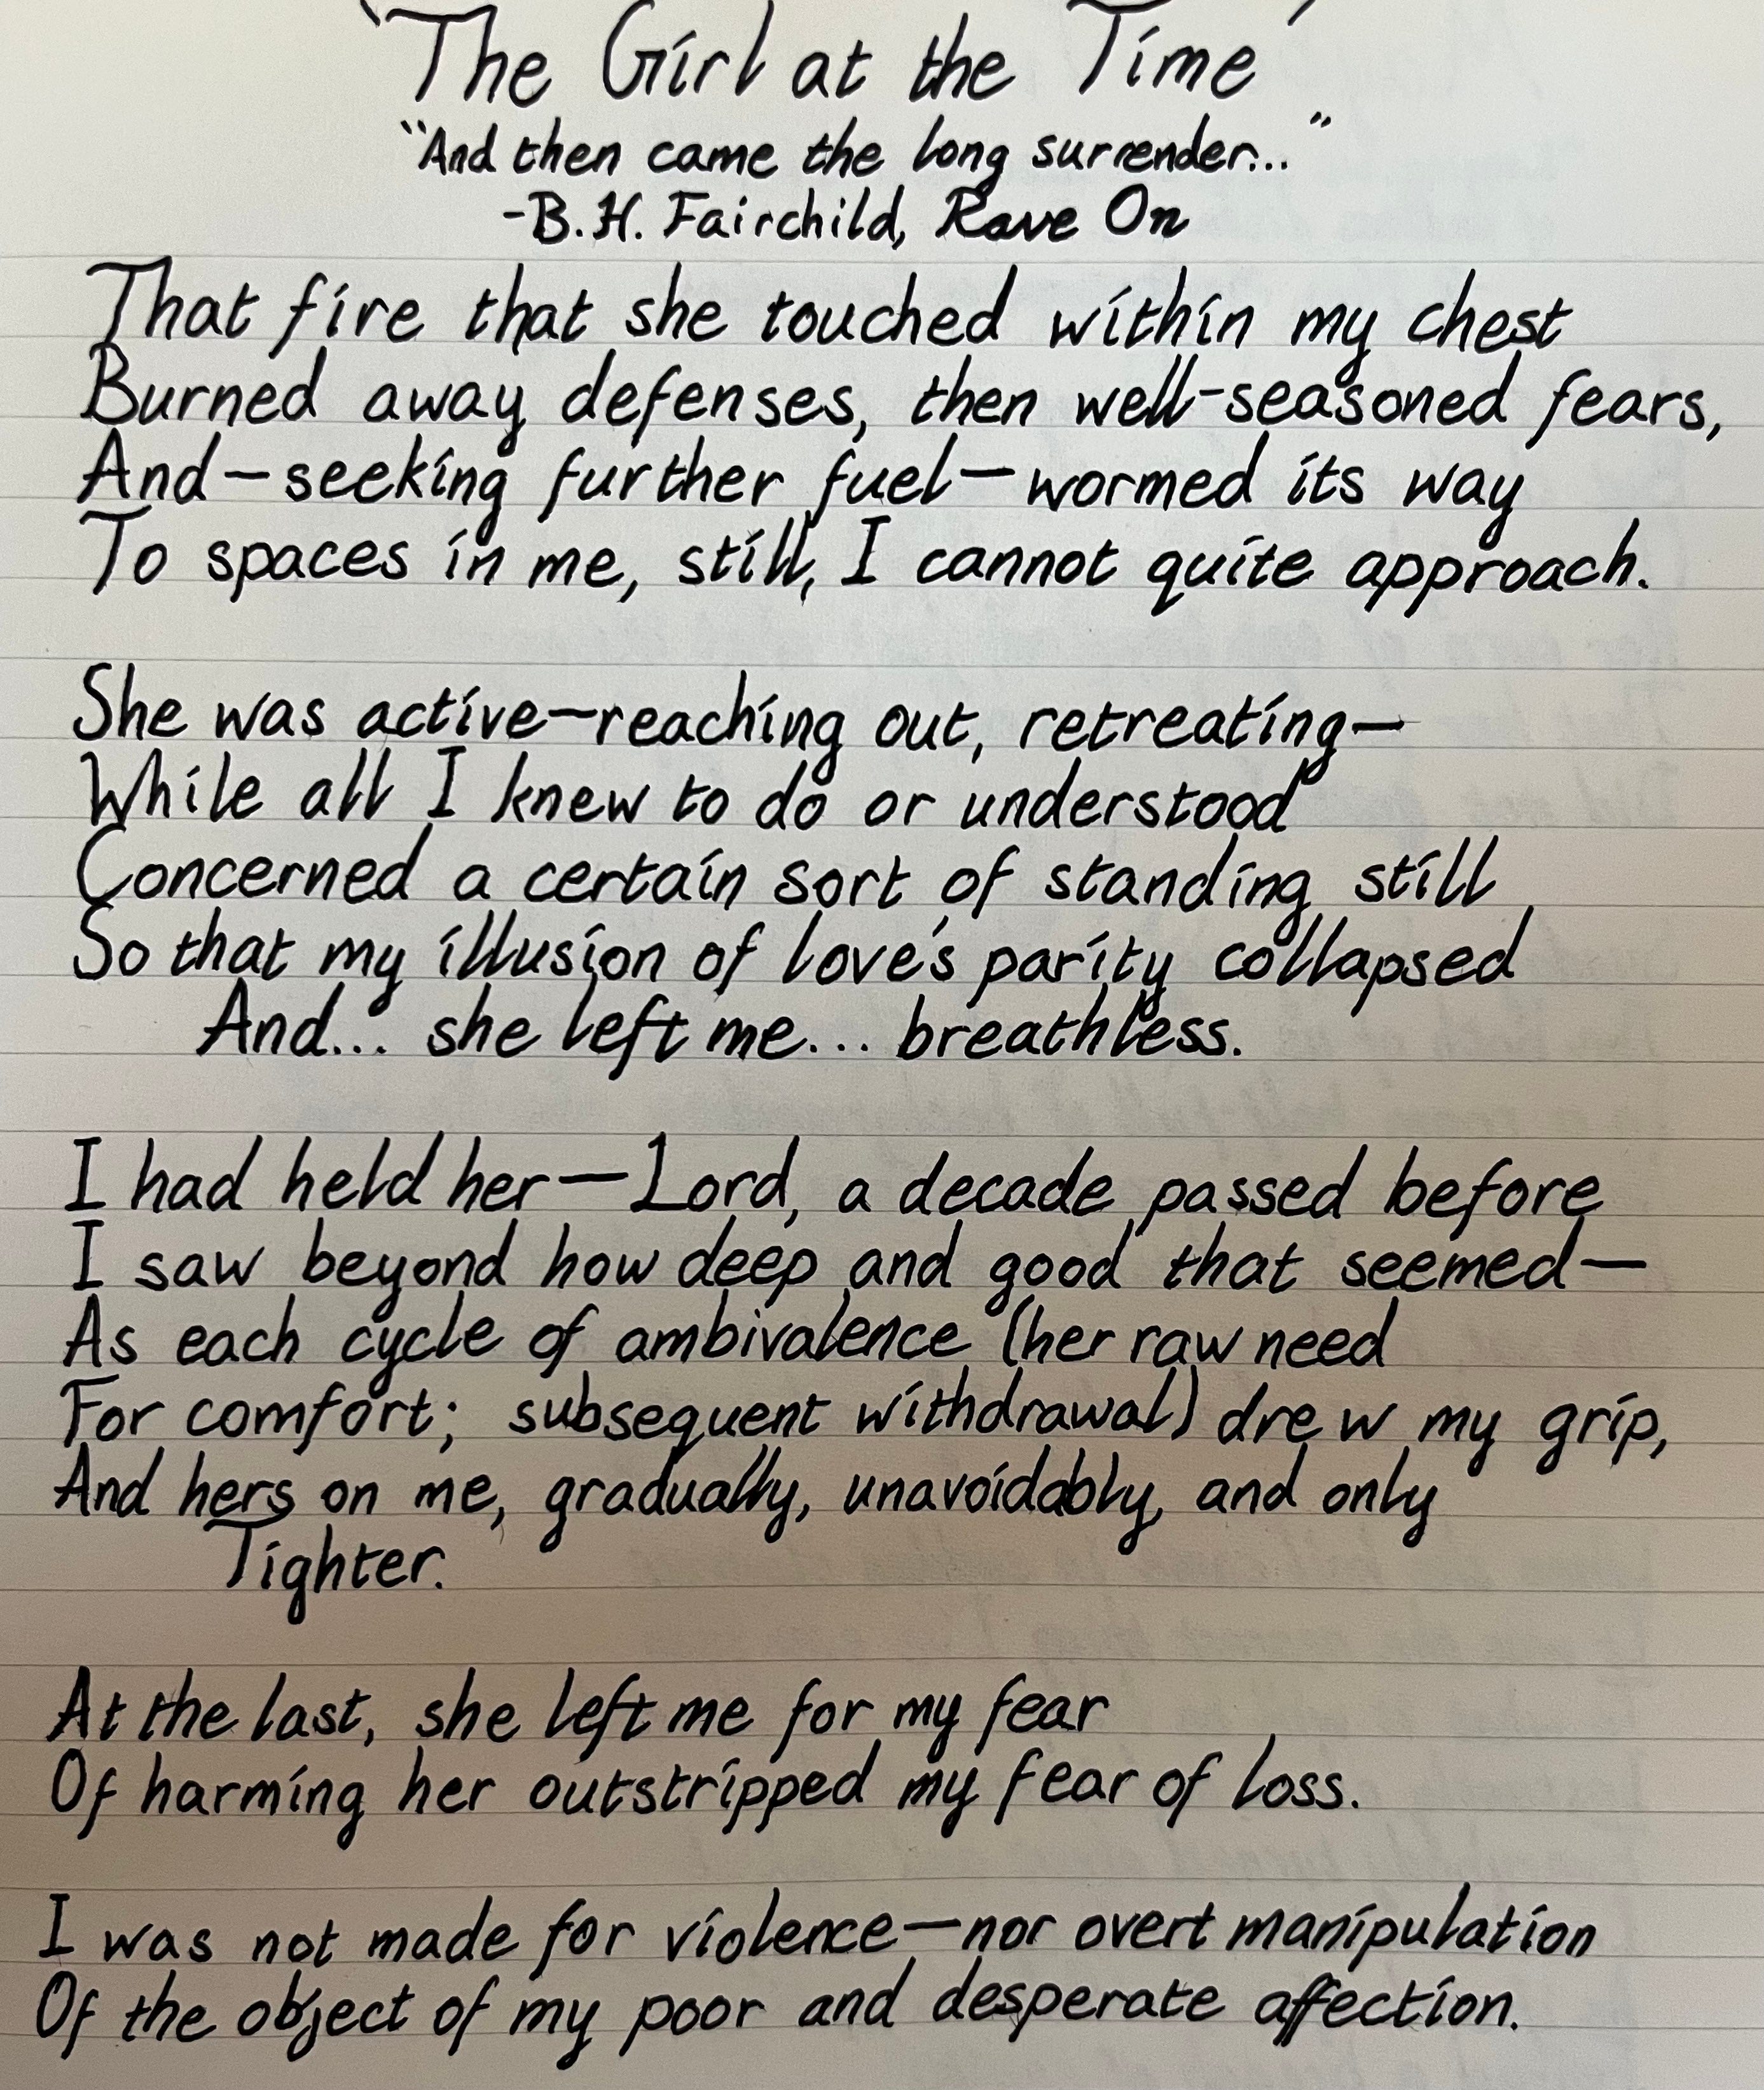 `The Girl at the Time´
“And then came the long surrender...”
-B.H. Fairchild, Rave On
That fire that she touched within my chest
Burned away defenses, then well-seasoned fears,
And—seeking further fuel—wormed its way
To spaces in me, still, I cannot quite approach.
She was active—reaching out, retreating—
While all I knew to do or understood
Concerned a certain sort of standing still
So that my illusion of love's parity collapsed
And... she left me... breathless.
I had held her—Lord, a decade passed before
I saw beyond how deep and good that seemed—
As each cycle of ambivalence (her raw need
For comfort; subsequent withdrawal) drew my grip,
And hers on me, gradually, unavoidably, and only
Tighter.
At the last, she left me for my fear
Of harming her outstripped my fear of loss.
I was not made for violence—nor overt manipulation
Of the object of my poor and desperate affection.